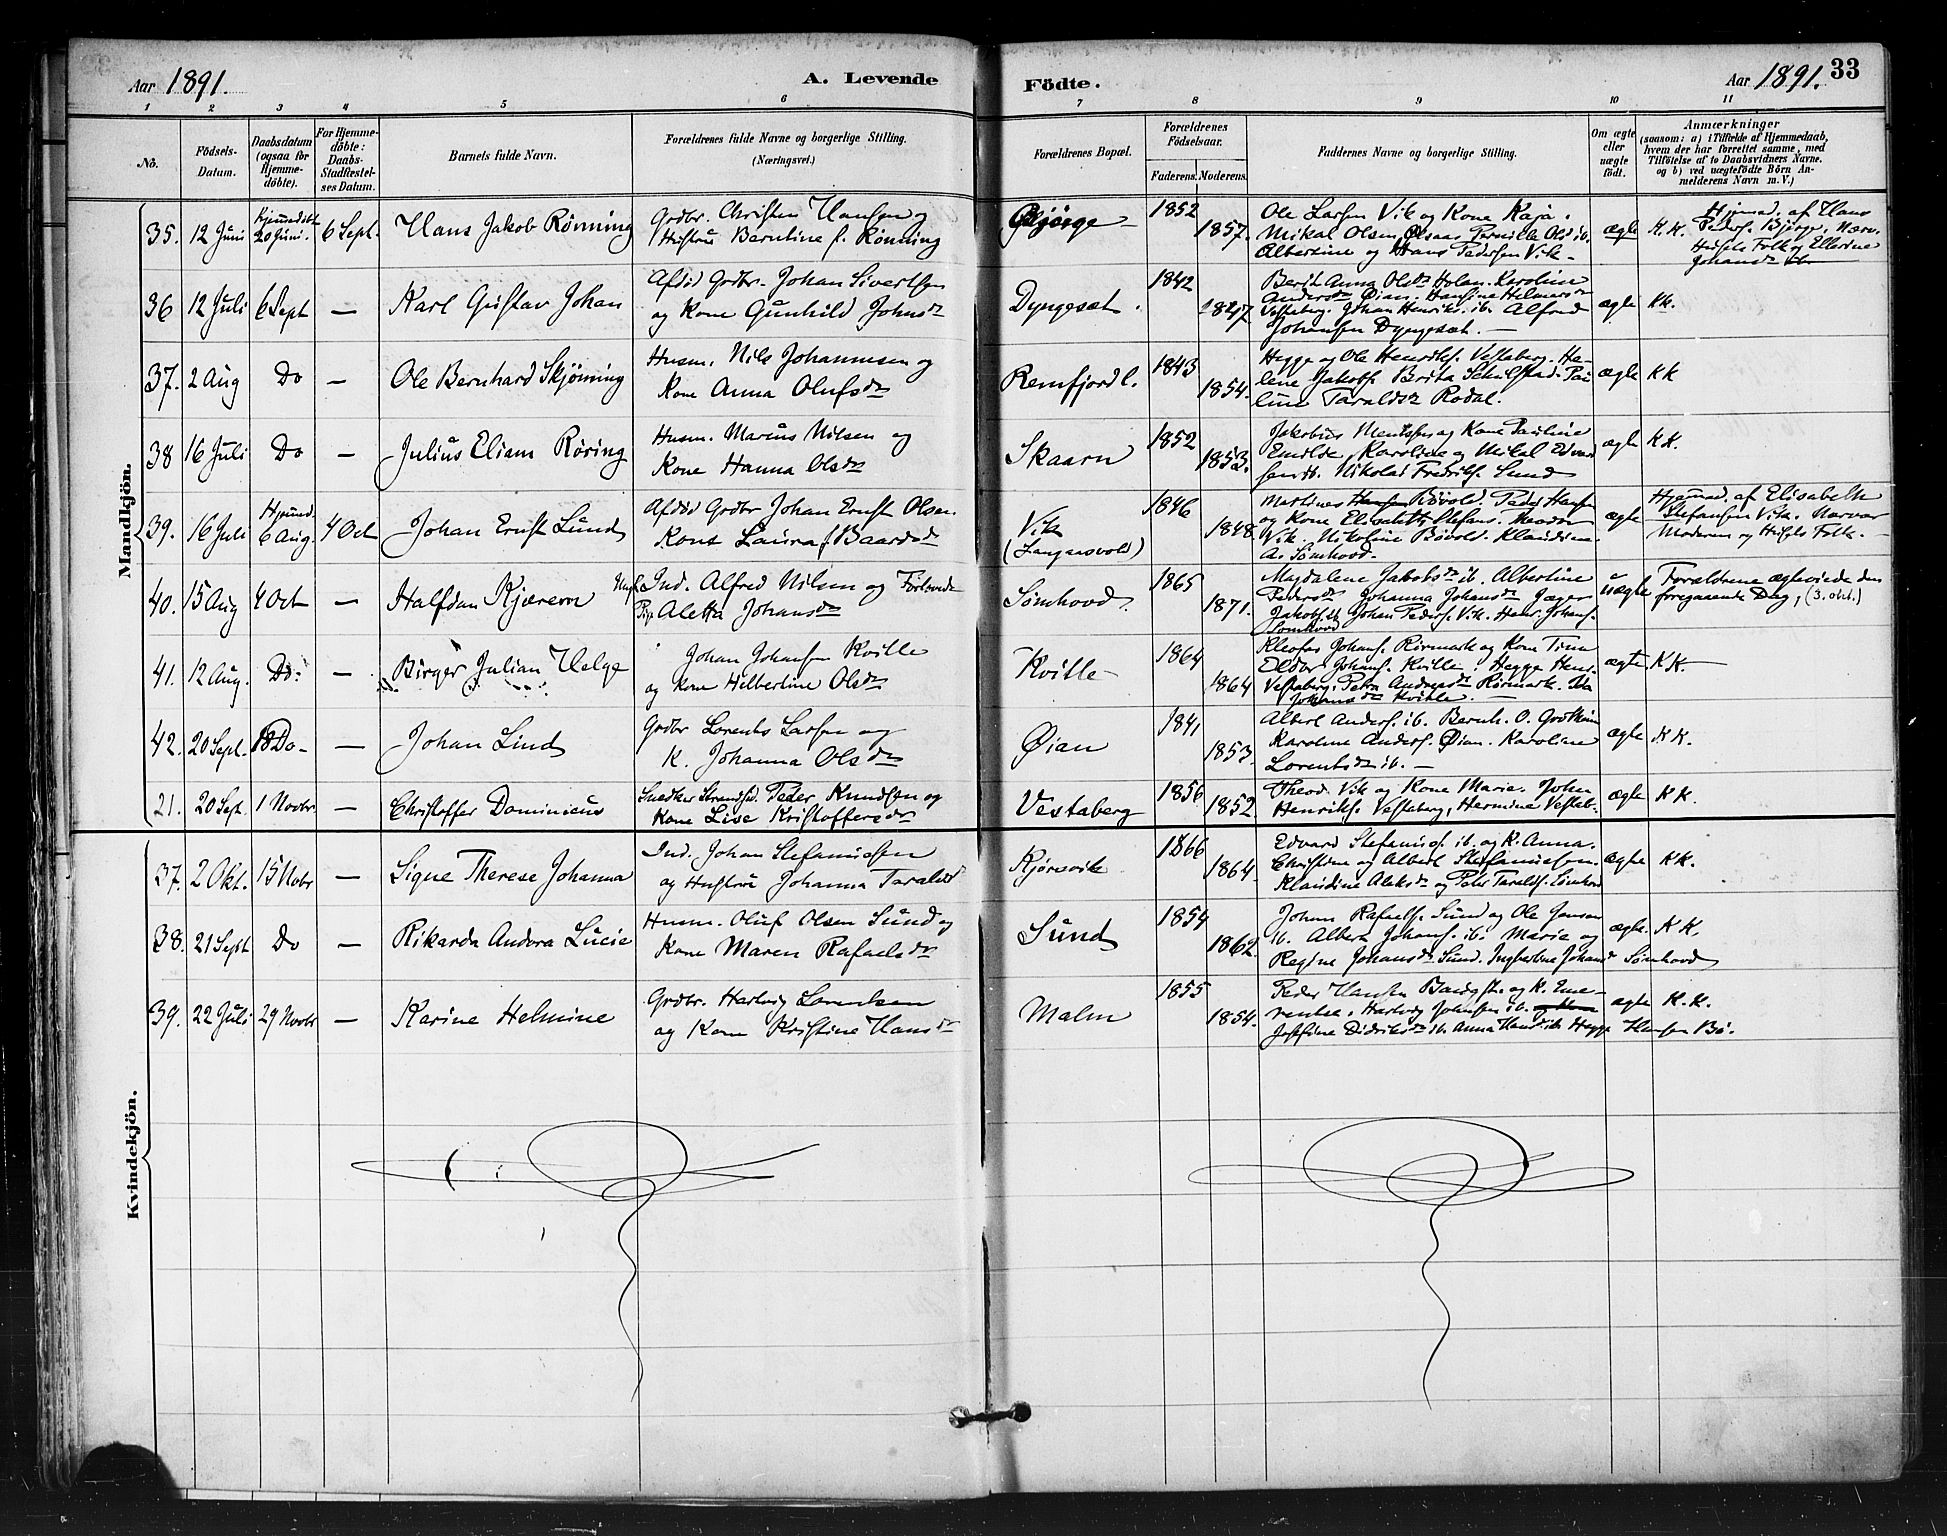 Aar 1891.
A. Levende
Födte.
Aar 1891. 33
1 2 3 4 5 6 7 8 9 10 11
No.
Födsels-Datum.
Daabsdatum (ogsaa for Hjemme-döbte).
For Hjemme-döbte: Daabs-Stadfæstel-ses Datum.
Barnets fulde Navn.
Forældrenes fulde Navne og borgerlige Stilling.
(Næringsvei.)
Forældrenes Bopæl.
Forældrenes Födselsaar.
Faderens. Moderens.
Faddernes Navne og borgerlige Stilling.
Om ægte eller uægte födt.
Anmærkninger
(saasom: a) i Tilfælde af Hjemmedaab, hvem der har forrettet samme, med Tilföielse af to Daabsvidners Navne. og b) ved uægtefödte Börn An-melderens Navn m. V.)
Mandkjön.
35. 12 Juni 20 Juni. 6 Sept. Hans Jakob Rønning
Grdbr. Christen Hansen og
Hustru Berntine f. Rønning
Bjørge 1852 1857.
Ole Larsen Vik og Kone Kaja.
Mikal Olsen Pernille Ols ib.
Albertine og Hans Pedersen Vik
ægte K.K.
Hjemmed. af Hans
Peders. Bjørge. Nærv.
Husets Folk og Ellerine
Johansdr ib.
36 12 Juli 6 Sept — Karl Gustav Johan
Afdöd Grdbr. Johan Sivertsen
og Kone Gunhild Johnsdr
Dyngesæt. 1842 1847
Berit Anna Olsdr Holan. Karoline
Andersdr Øian. Hansine Helmersdr
Vestaberg. Johan Henriks. ib. Alfred
Johansen Dyngesæt. —
ægte KK.
37. 2 Aug Do — Ole Bernhard Skjønning
Husm. Nils Johannesen og
Kone Anna Olufsdr
Remfjordl. 1843 1854.
Hegge og Ole Henriks. Vestaberg. He-
lene Jakobs. Berita Pau
line Taraldsdr Rodal.
ægte KK
38 16 Juli Do — Julius Eliam Røring
Husm. Marius Nilsen og
Kone Hanna Olsdr
Skaarn 1852 1853.
Jakobus og Kone Pauline
Karoline og Mikal Edvard
sen ib. Nikolai Fredriks. Sund
ægte KK.
39. 16 Juli 6 Aug. 4 Oct Johan Ernst Lund
Afdöd Grdbr Johan Ernst Olsen.
Kone Laura f. Baardsdr
Vik
(Langaasvold)
1846 1848
Martinus Hansen Bövold. Peder Hansen
og Kone Stefans.
Vik. Nikoline Bövold. Klaudine
A. Sømhovd.
ægte
Hjemmed. af Elisabeth
Stefansen Vik. Nærvær
Moderen og Husets Folk. —
40. 15 Aug 4 Oct — Halfdan Kjærem
Ungk. Ind. Alfred Nilsen og Forlovede
Pig. Aletta Johansdr
Sømhovd. 1865 1871.
Magdalene Jakobsdr ib. Albertine
Pedersdr Johanna Johansdr Jæger
Jakobs. ib Johan Peders. Vik. Hans Johans.
Sømhovd
uægte
Forældrene ægteviede den
foregaaende Dag, (3. okt.)
41. 12 Aug. Do. — Birger Julian Helge
Johan Johansen Kville
og Kone Hilbertine Olsdr
Kville 1864 1864
Kleofas Johans. Rørmark og Kone Tina
Johans. Kville. Hegge Hen-
Vestaberg. Petra Andreasdr Rørmark. Ida
Johansdr Kville. —
ægte KK.
42. 20 Sept. 18 Do — Johan Lind
Grdbr Lorents Larsen og
K. Johanna Olsdr
Øian 1841, 1853.
Albert Anders. ib. Bernh. O.
Karoline Anders. Øian. Karoline
Lorentsdr ib. —
ægte KK.
21. 20 Sept. 1 Novbr. — Christoffer Dominicus
Snedker Strands. Peder Knudsen og
Kone Lise Kristoffersdr
Vestaberg 1856 1852.
Theod. Vik og Kone Marie. John
Henriks. Vestaberg, Hermine Vestab.
ægte KK.
Kvindekjön.
37. 2 Okt. 15 Novbr — Signe Therese Johanna
Ind. Johan Stefanusen
og Hustru Johanna Taraldsdr
Kjørsvik 1866 1864.
Edvard Stefanus. ib. og K. Anna.
Christine og Albert Stefanusen.
Klaudine Aleksdr og Peter Taralds. Sømhovd
ægte KK.
38. 21 Sept Do — Rikarda Andora Lucie
Husm. Oluf Olsen Sund og
Kone Maren Rafaelsdr
Sund 1854 1862.
Johan Rafaels. Sund og Ole Jensen
ib. Albert Johans. ib. Marie og
Regine Johansdr Sund. Ingbertine Johansd Sømhovd
ægte. KK.
39. 22 Juli 29 Novbr — Karine Helmine
Grdbr. Hartvig Lorentsen
og Kone Kristine Hansdr
Malm 1855 1854.
Peder Hansen og K. Eme-
rentse. Hartvig Johnsen ib.
Josefine Didriksdr ib. Anna Hansd ib. Hegge Hansen Bö.
ægte K.K.